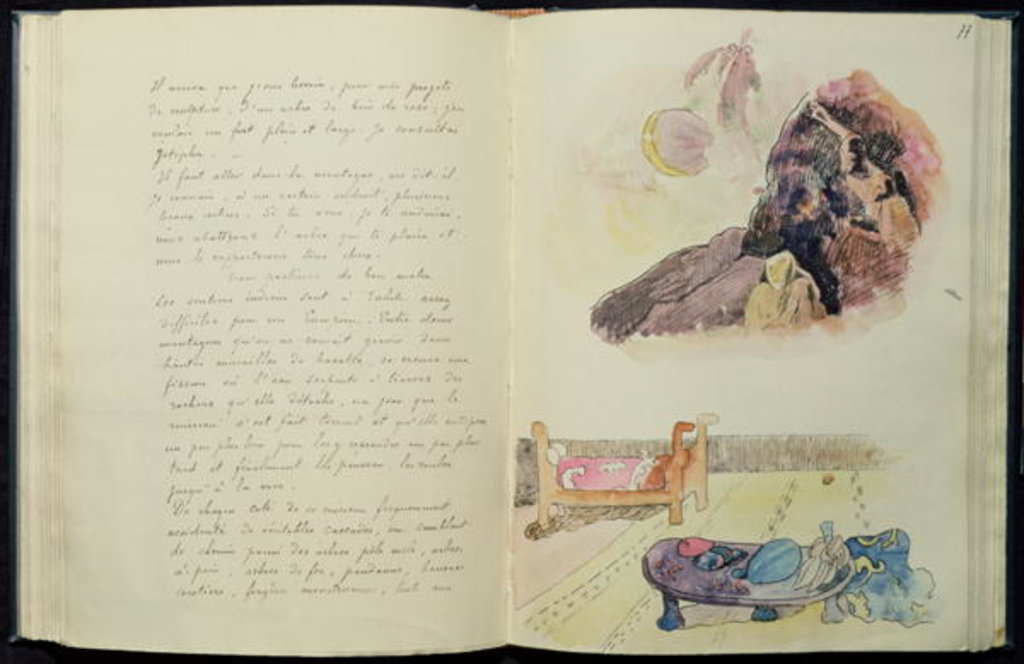 11
Il arriva que j'eus besoin, pour mes projets
de sculpture, d'un arbre de bois de rose; j'en
voulais un fort plein et large. Je consultai
Jotépha.
Il faut aller dans la montagne, me dit-il.
Je connais, à un certain endroit, plusieurs
beaux arbres. Si tu veux, je te conduirai,
nous abattrons l'arbre qui te plaira et
nous le rapporterons tous deux.
Nous partîmes de bon matin
Les sentiers indiens sont à Tahiti assez
difficiles pour un Européen. Entre deux
montagnes qu'on ne saurait gravir deux
hautes murailles de basalte, se creuse une
fissure où l'eau serpente à travers des
rochers qu'elle détache, un jour que le
ruisseau s'est fait torrent et qu'elle
un peu plus loin pour les y reprendre un peu plus
tard et finalement les pousser, les rouler
jusqu'à la mer.
De chaque côté de ce ruisseau fréquemment
accidenté de véritables cascades, un semblant
de chemin parmi des arbres pêle mêle, arbres
à pain, arbres de fer, pandanus, bouraos
cocotiers, fougères monstrueuses, toute une